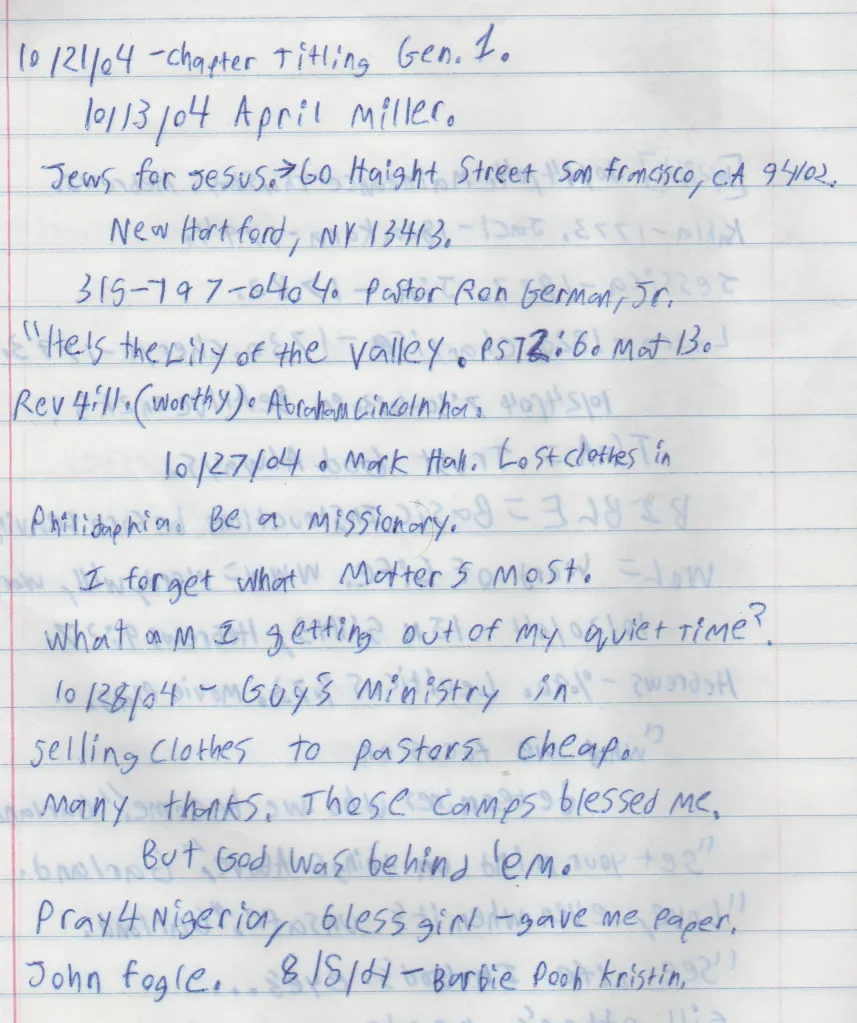 10/21/04 - chapter Titling Gen. 1.
10/13/04 April Miller.
Jews for Jesus.→60 Haight Street San francisco, CA 94102.
New Hartford, NY 13413.
315-797-0404. Pastor Ron German, Jr.
"He's the Lily of the valley. PS 72:6. Mat 13.
Rev 4:11. (worthy). Abraham Lincoln ha.
10/27/04. Mark Hall. Lost clothes in
Philidaphia. Be a missionary.
I forget what Matters most.
What am I getting out of my quiet time?
10/28/04 - Guy's ministry in
selling clothes to pastors cheap.
Many thanks. These camps blessed me.
But God was behind 'em.
Pray 4 Nigeria, bless girl - gave me paper.
John fogle. 8/5/04 - Barbie Pooh Kristin.